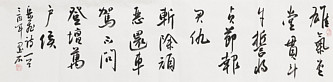 雄氣堂
堂貫斗
牛誓將
貞節報
君仇
斬除頑
惡還車
駕不問
登壇萬
戶侯
岳飛詩一首